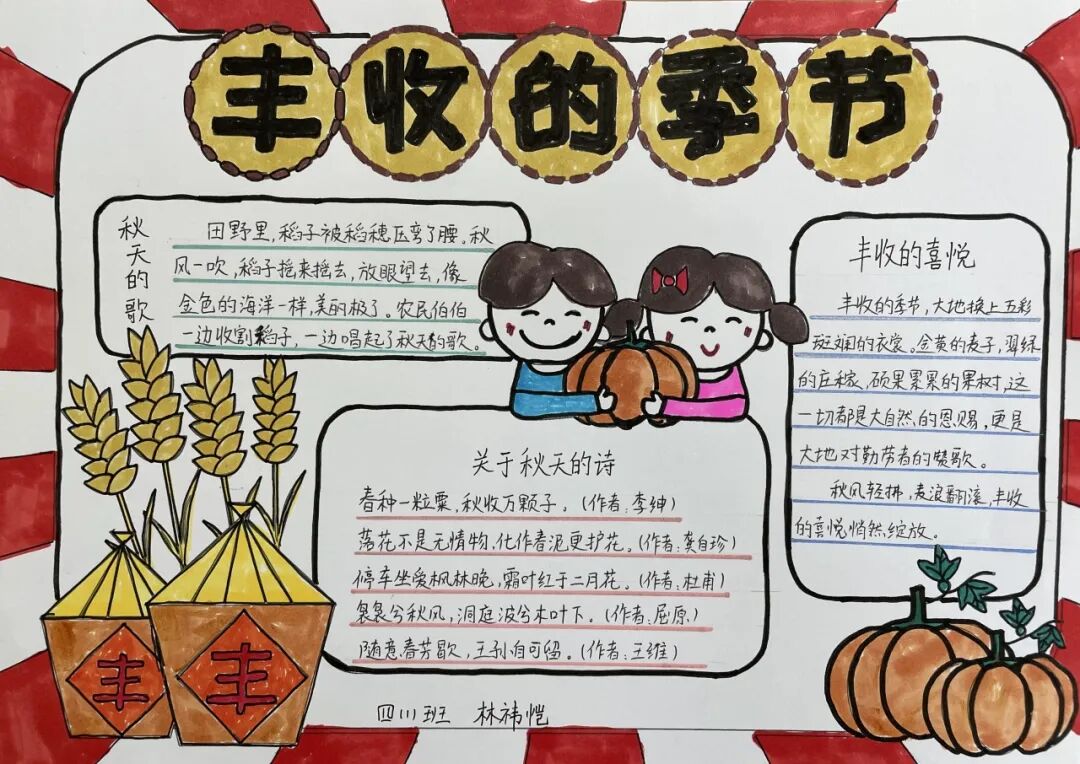 丰收的季节
秋天的歌
田野里,稻子被稻穗压弯了腰。秋
风一吹,稻子摇来摇去,放眼望去,像
金色的海洋一样,美的极了。农民伯伯
一边收割稻子,一边唱起了秋天的歌。
丰收的喜悦
丰收的季节,大地换上五彩
斑斓的衣裳。金黄的麦子,翠绿
的庄稼,硕果累累的果树,这
一切都是大自然的恩赐,更是
大地对勤劳者的赞歌。
秋风轻拂,麦浪翻滚,丰收
的喜悦悄然绽放。
关于秋天的诗
春种一粒粟,秋收万颗子。(作者:李绅)
落花不是无情物,化作春泥更护花。(作者:龚自珍)
停车坐爱枫林晚,霜叶红于二月花。(作者:杜甫)
袅袅兮秋风,洞庭波兮木叶下。(作者:屈原)
随意春芳歇,王孙自可留。(作者:王维)
丰
丰
四(1)班 林祎恺